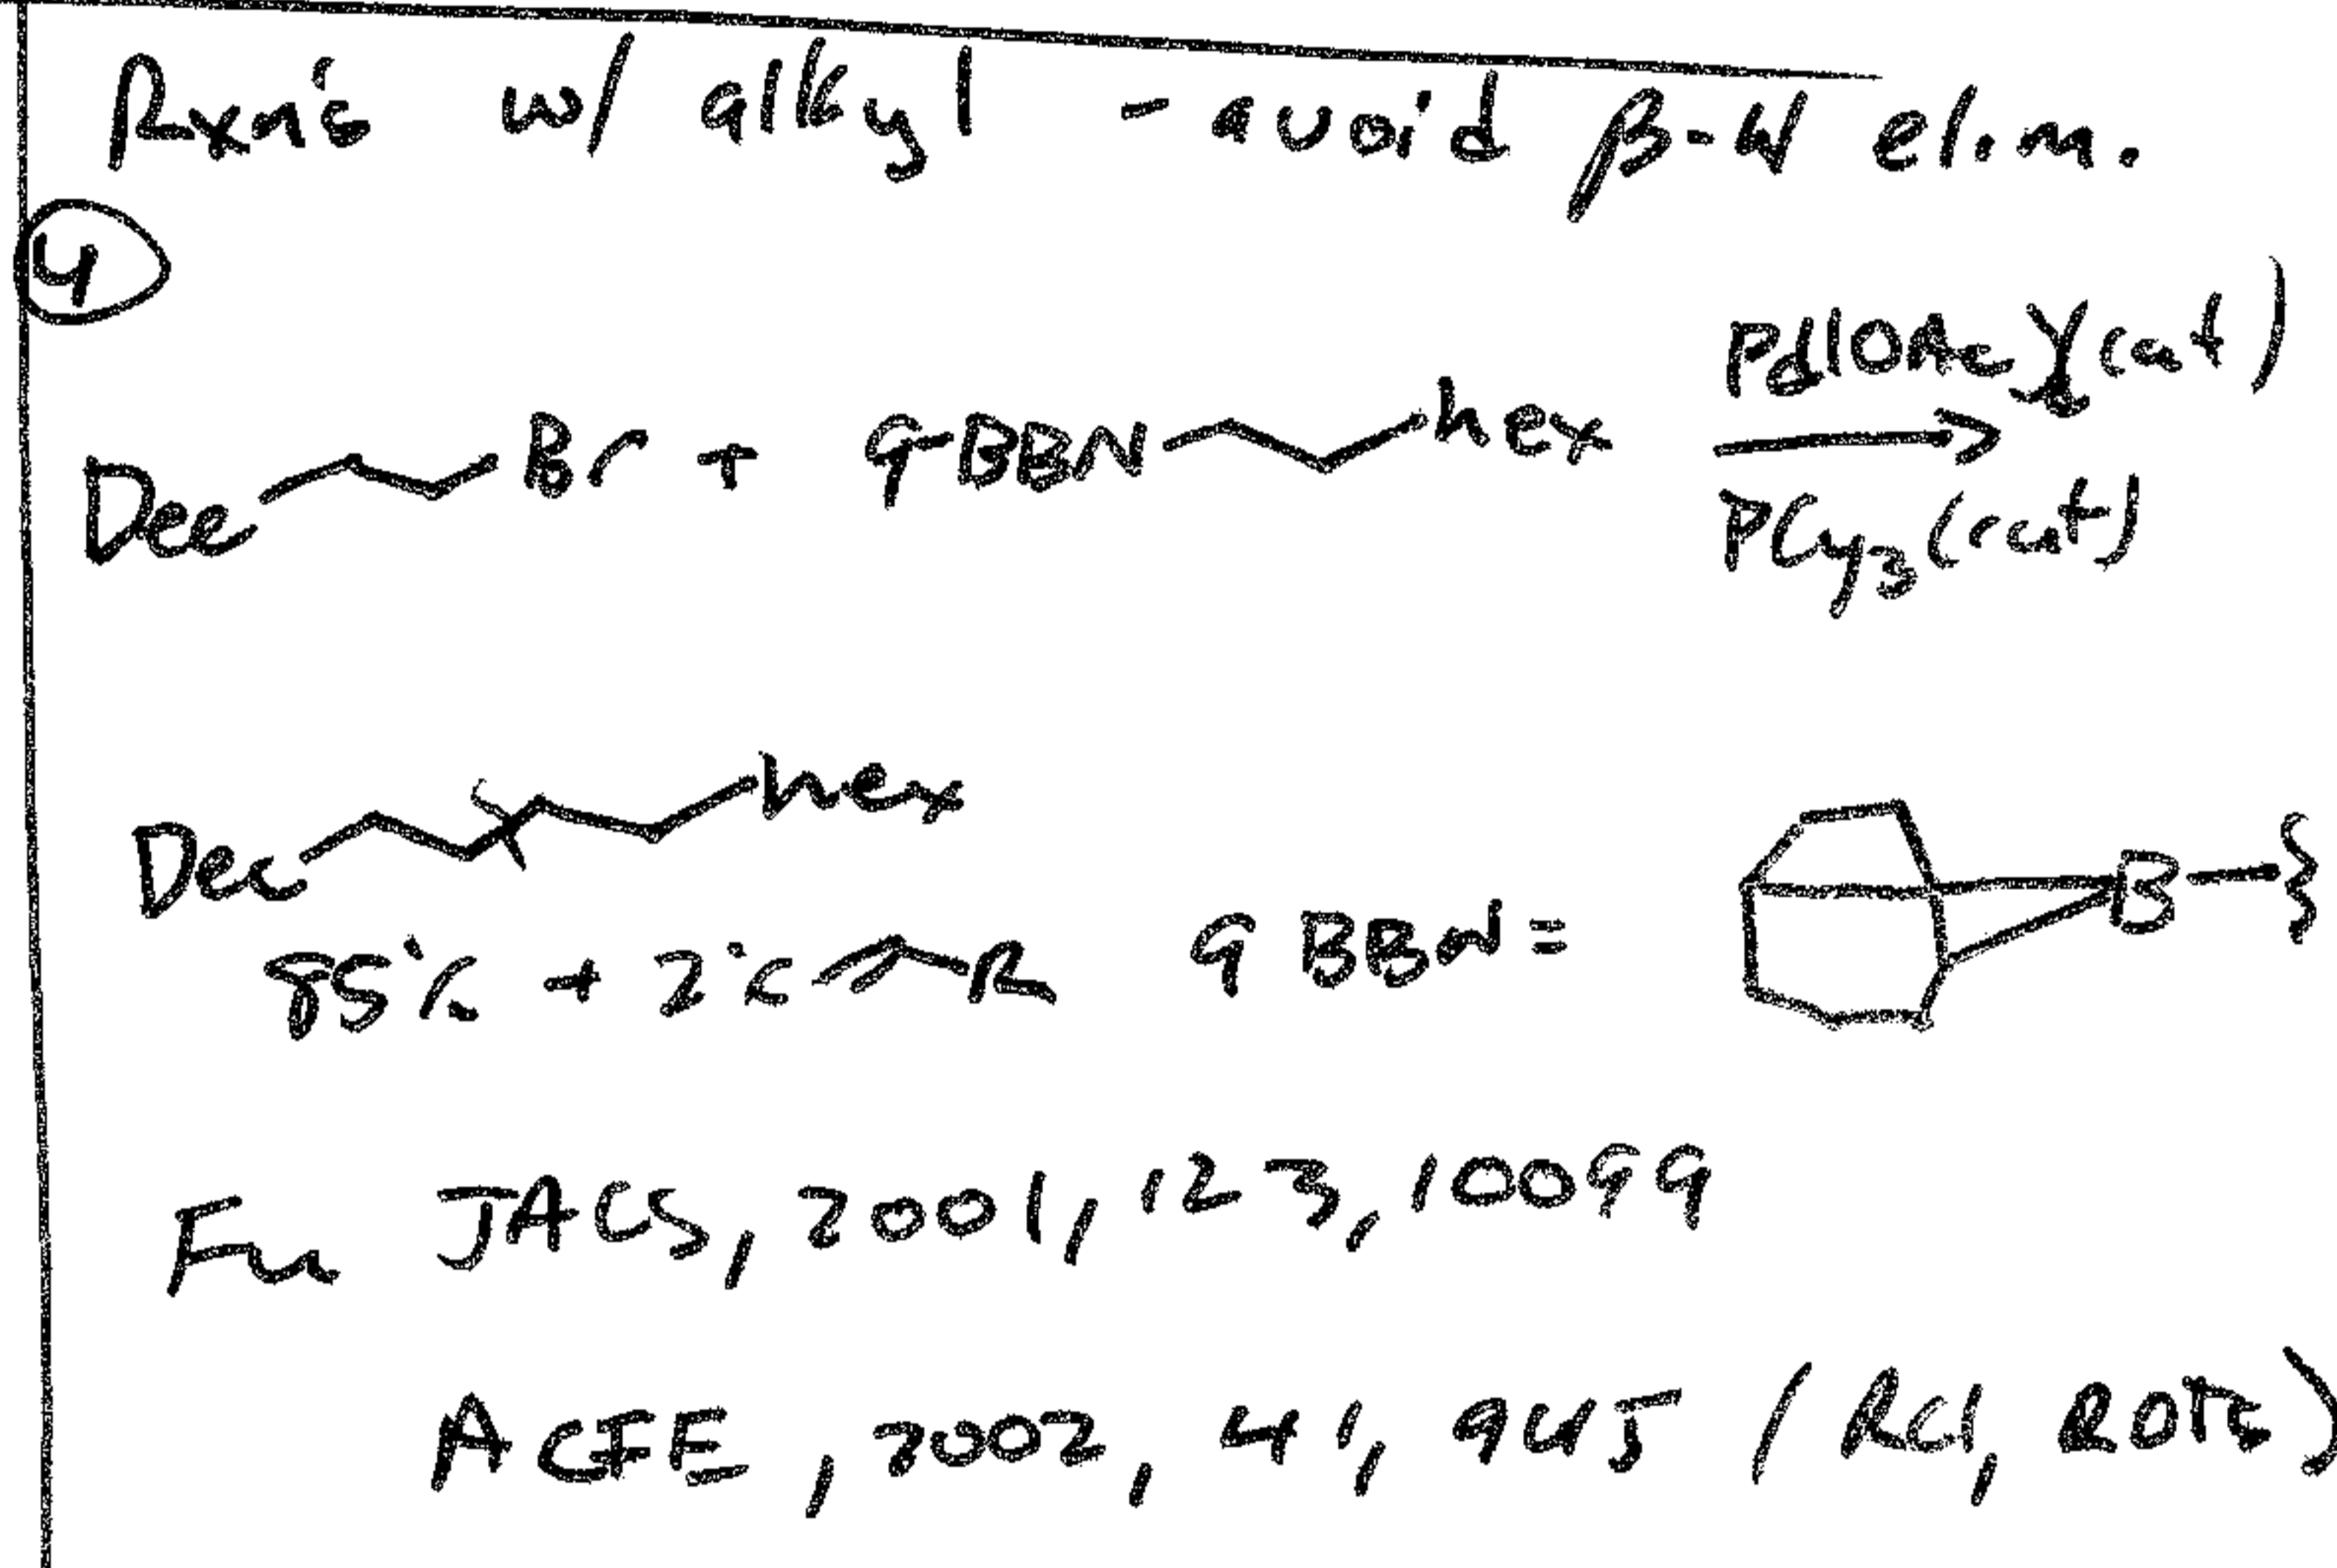 Rxn's w/ alkyl - avoid β-H elim.
4
Pd(OAc)2 (cat)
Dec Br + 9-BBN hex
PCy3 (cat)
Dec hex
85% + 2% R 9 BBN = B
Fu JACS, 2001, 123, 10099
ACIE, 2002, 41, 945 (RCl, ROTs)